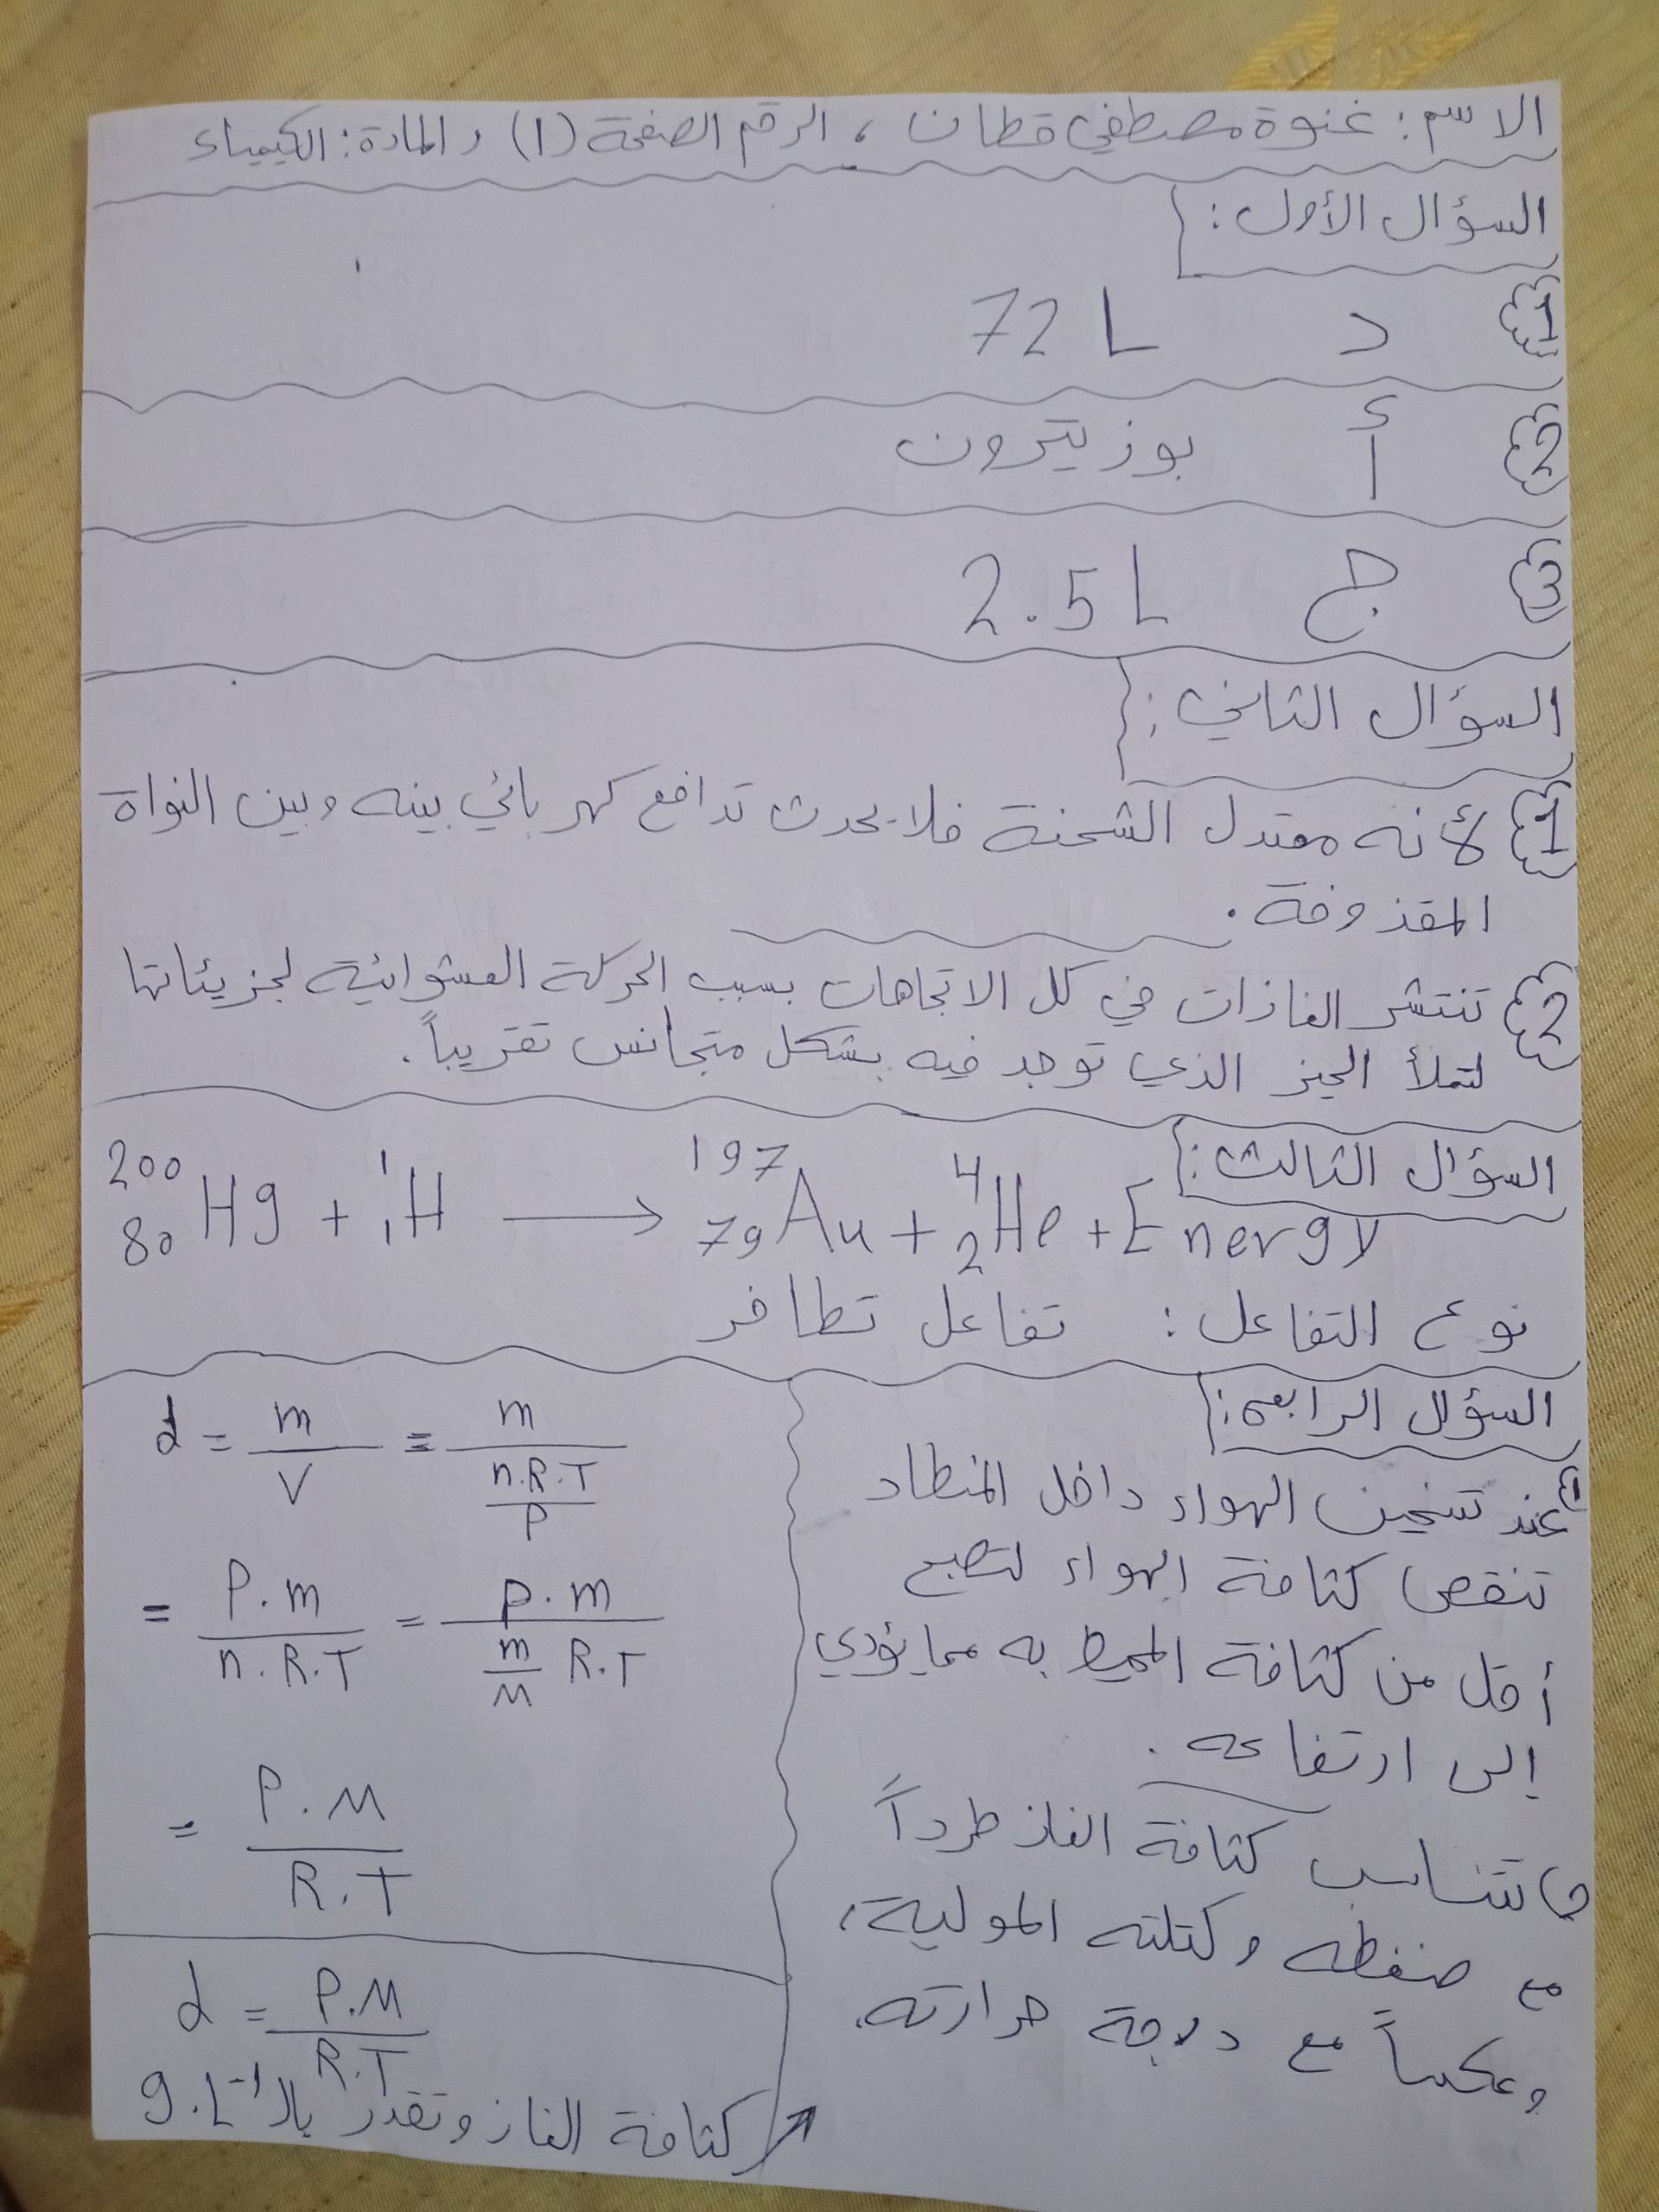 الاسم: غنوة مصطفى قطان ، الرقم الصفحة (1) والمادة: الكيمياء
السؤال الأول:
1 د 72 L
2 أ بوزيترون
3 ج 2.5 L
السؤال الثاني:
1 لأنه معتدل الشحنة فلا يحدث تدافع كهربائي بينه وبين النواة
المقذوفة.
2 تنتشر الغازات في كل الاتجاهات بسبب الحركة العشوائية لجزيئاتها
لتملأ الحيز الذي توجد فيه بشكل متجانس تقريباً.
السؤال الثالث:
²⁰⁰₈₀Hg + ¹₁H ⟶ ¹⁹⁷₇₉Au + ⁴₂He + Energy
نوع التفاعل: تفاعل تطافر
السؤال الرابع:
1 عند تسخين الهواء داخل المنطاد
تنقص كثافة الهواء لتصبح
أقل من كثافة المحيط به مما يؤدي
إلى ارتفاعه.
2 تتناسب كثافة الغاز طرداً
مع ضغطه وكتلته المولية،
وعكساً مع درجة حرارته.
d = m/V = m/(n.R.T/P)
= P.m/(n.R.T) = P.m/((m/M) R.T)
= P.M/(R.T)
d = P.M/(R.T)
كثافة الغاز وتقدر بالـ g.L⁻¹